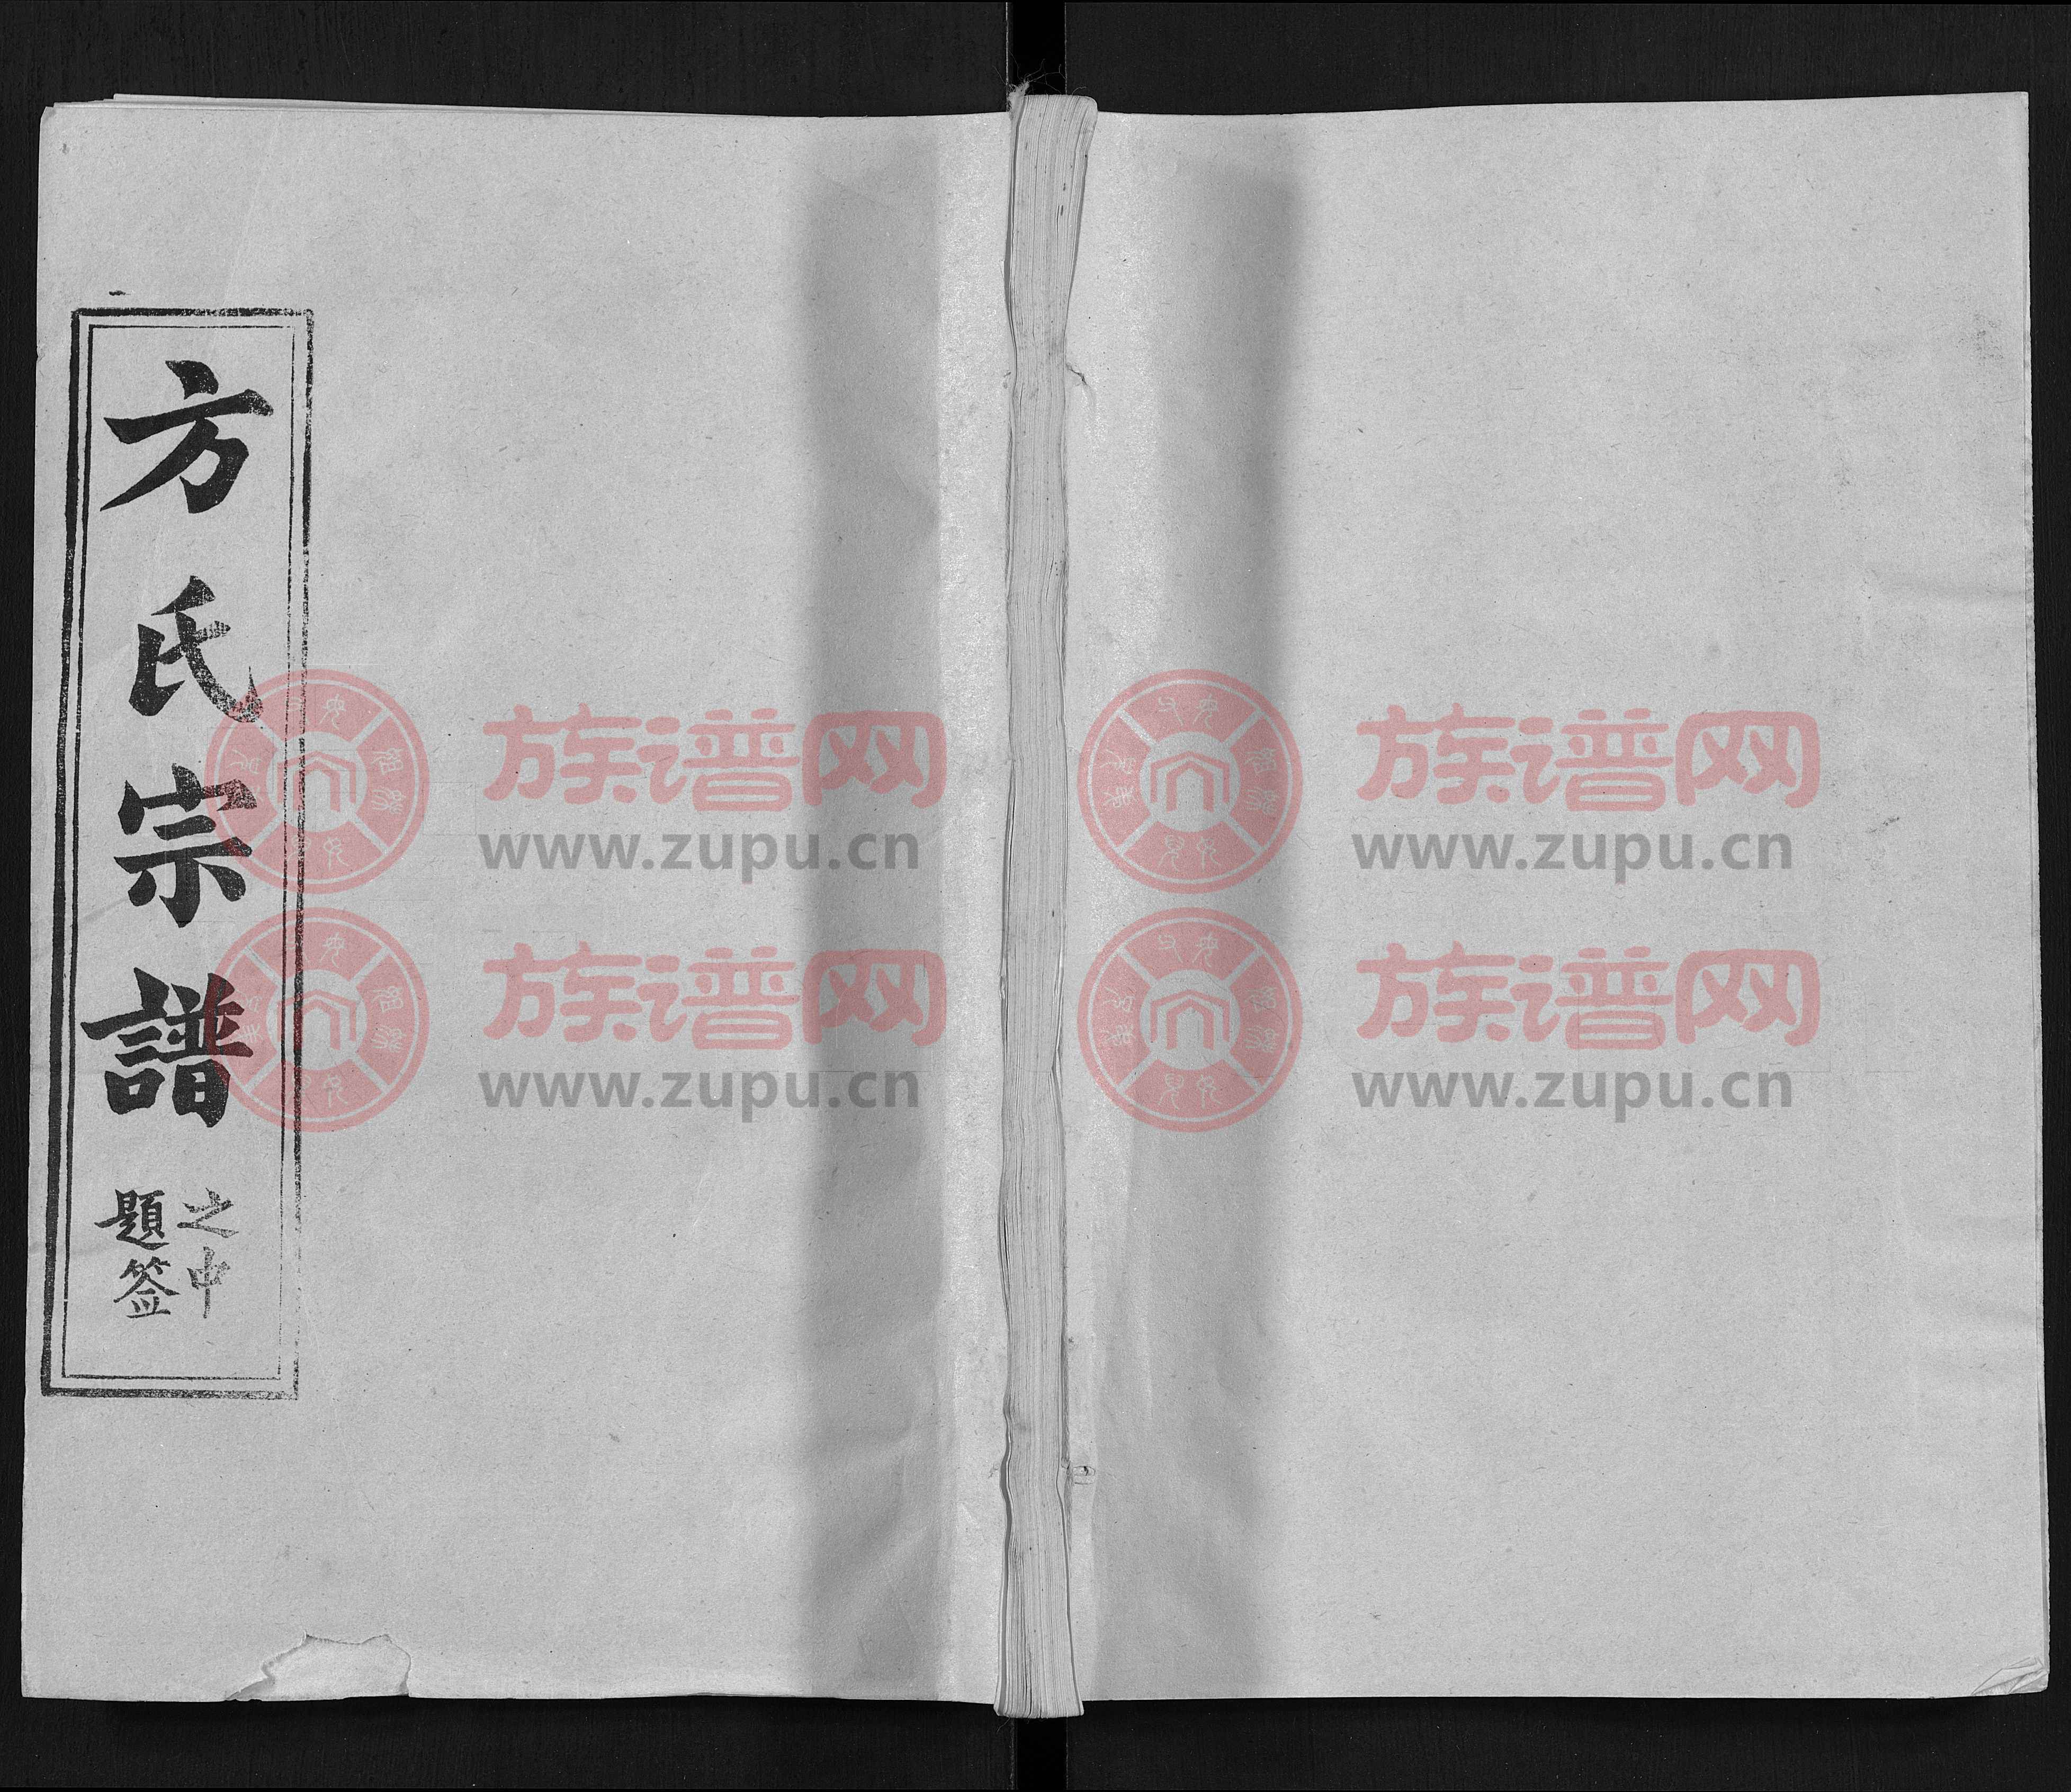 方氏宗譜
之中
題签
族谱网
www.zupu.cn
族谱网
www.zupu.cn
族谱网
www.zupu.cn
族谱网
www.zupu.cn